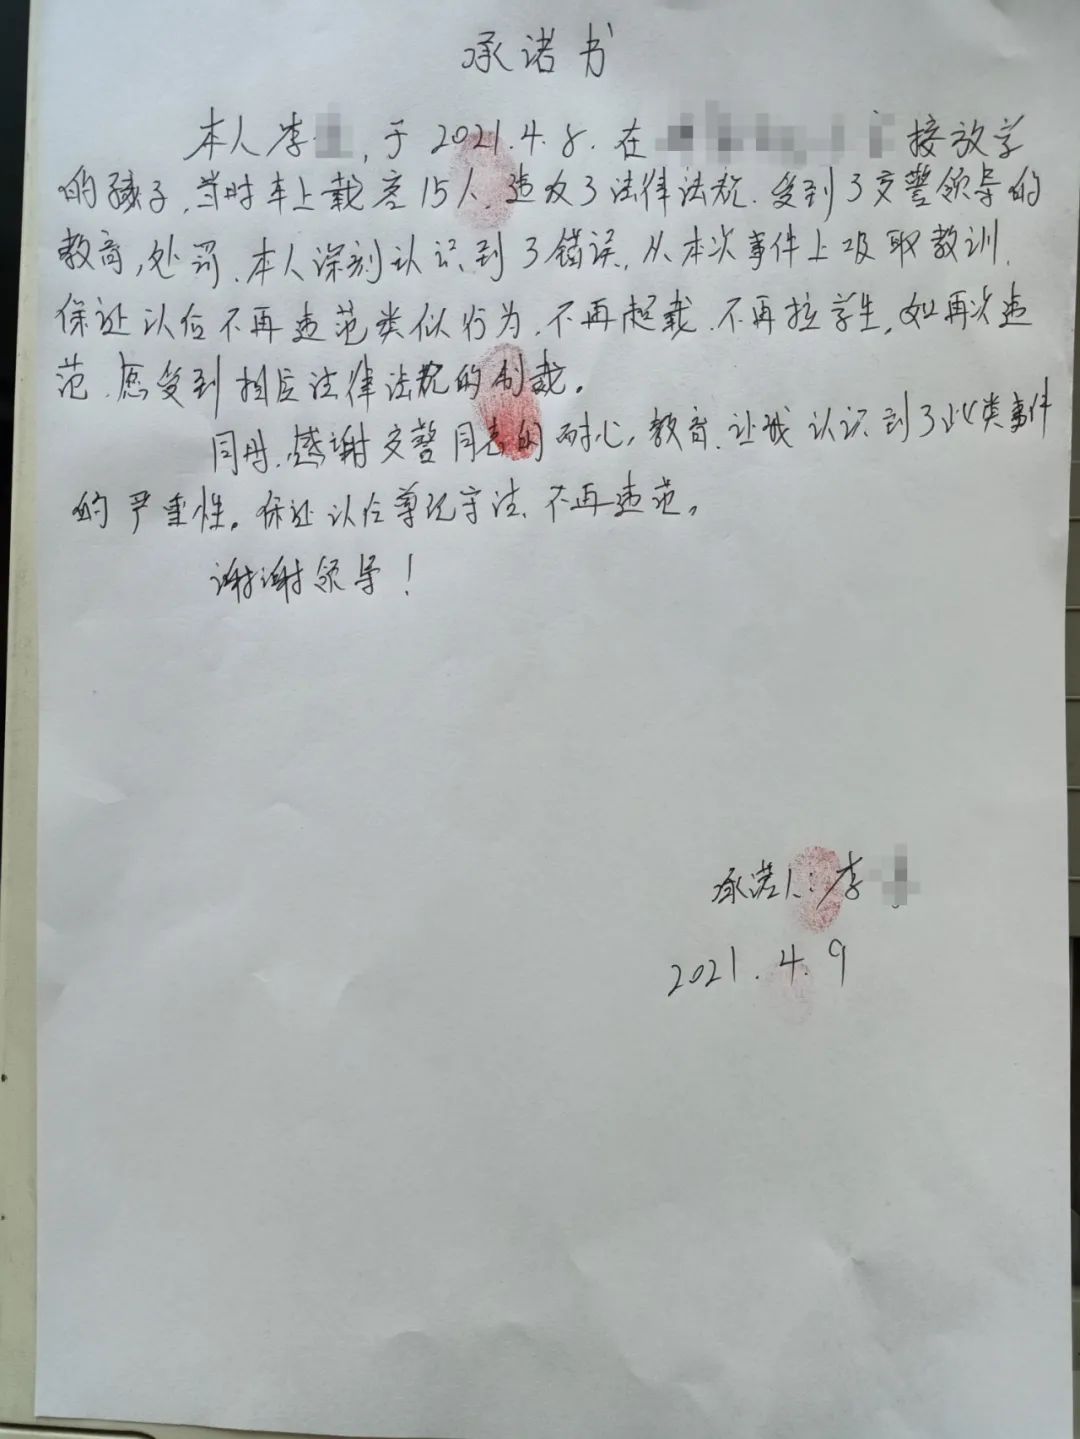 承诺书
本人李 ,于2021.4.8.在 接放学
的孩子,当时车上载客15人,违反了法律法规.受到了交警领导的
教育,处罚.本人深刻认识到了错误,从本次事件上吸取教训.
保证认后不再违范类似行为.不再超载.不再拉学生,如再次违
范.愿受到相应法律法规的制裁。
同时.感谢交警同志的耐心,教育.让我认识到了此类事件
的严重性。保证认后尊纪守法、不再违范。
谢谢领导!
承诺人:李
2021.4.9